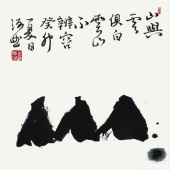 山與
雲
俱白
雲山
不
辨容
癸卯
夏日